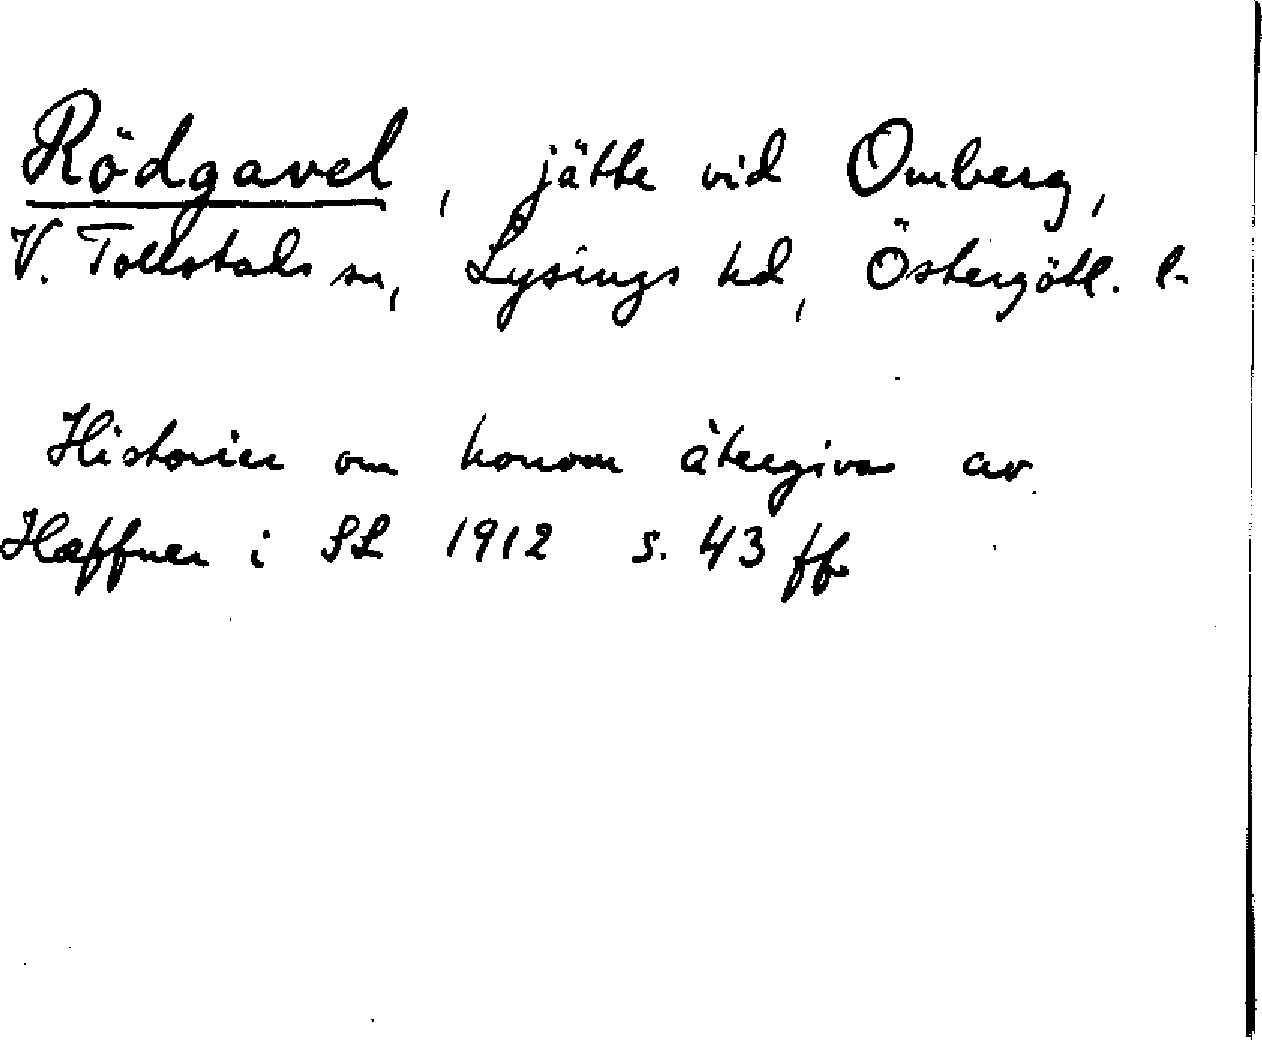 Rödgavel, jätte vid Omberg,
V. Tollstads sn, Lysings hd, Östergötl. l.
Historier om honom återgivas av
Hæffner i SL 1912 s. 43 ff.